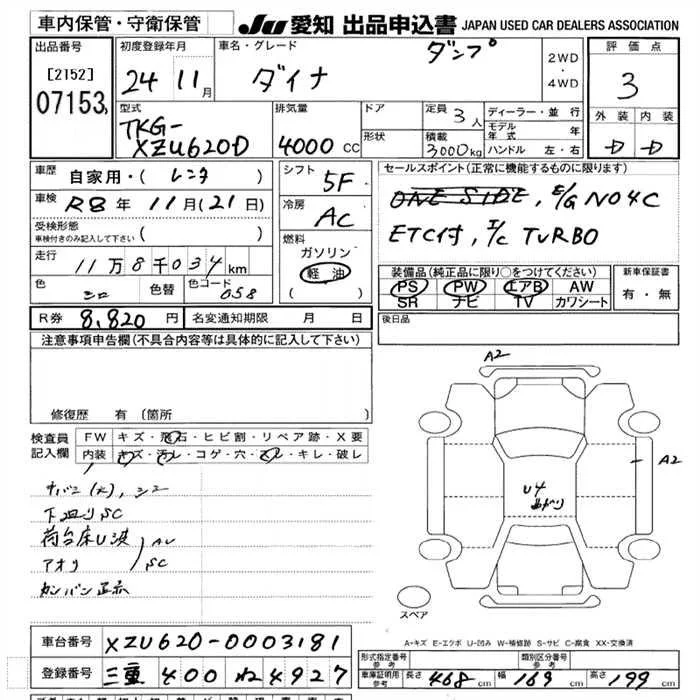 車内保管・守衛保管
JU 愛知 出品申込書 JAPAN USED CAR DEALERS ASSOCIATION
出品番号
[2152]
07153
初度登録年月
24 11月
車名・グレード
ダイナ
ダンプ
2WD
・
4WD
評価点
3
外装 内装
D D
型式
TKG-
XZU620D
排気量
4000 CC
ドア
形状
定員 3人
積載
3000kg
ディーラー・並行
モデル
年式 年
ハンドル 左・右
車歴 自家用・( レンタ )
車検 R8年 11月(21日)
受検形態
車検付きのみ記入して下さい ( )
走行 11万8千034km
色 シロ 色替 色コード 058
シフト 5F
冷房 AC
燃料
ガソリン
軽油
( )
セールスポイント(正常に機能するものに限ります)
ONE SIDE, E/G NO4C
ETC付, I/C TURBO
装備品(純正品に限り○をつけてください)
PS PW エアB AW
SR ナビ TV カワシート
新車保証書
有・無
R券 8,820円 名変通知期限 月 日
後日品
注意事項申告欄(不具合内容等は具体的に記入して下さい)
修復歴 有 (箇所
検査員
記入欄
FW キズ・飛石・ヒビ割・リペア跡・X要
内装 キズ・汚レ・コゲ・穴・スレ・キレ・破レ
下廻りSC
荷台床U波
アオリ
AU
SC
カンバン正示
A2
A2
U4
スペア
A-キズ E-エクボ U-凹み W-補修跡 S-サビ C-腐食 XX-交換済
車台番号 XZU620-0003181
登録番号 三重 400 ね 4927
形式指定番号
参考
類別区分番号
参考
車庫証明用
参考
長さ 468cm 幅 169cm 高さ 199cm